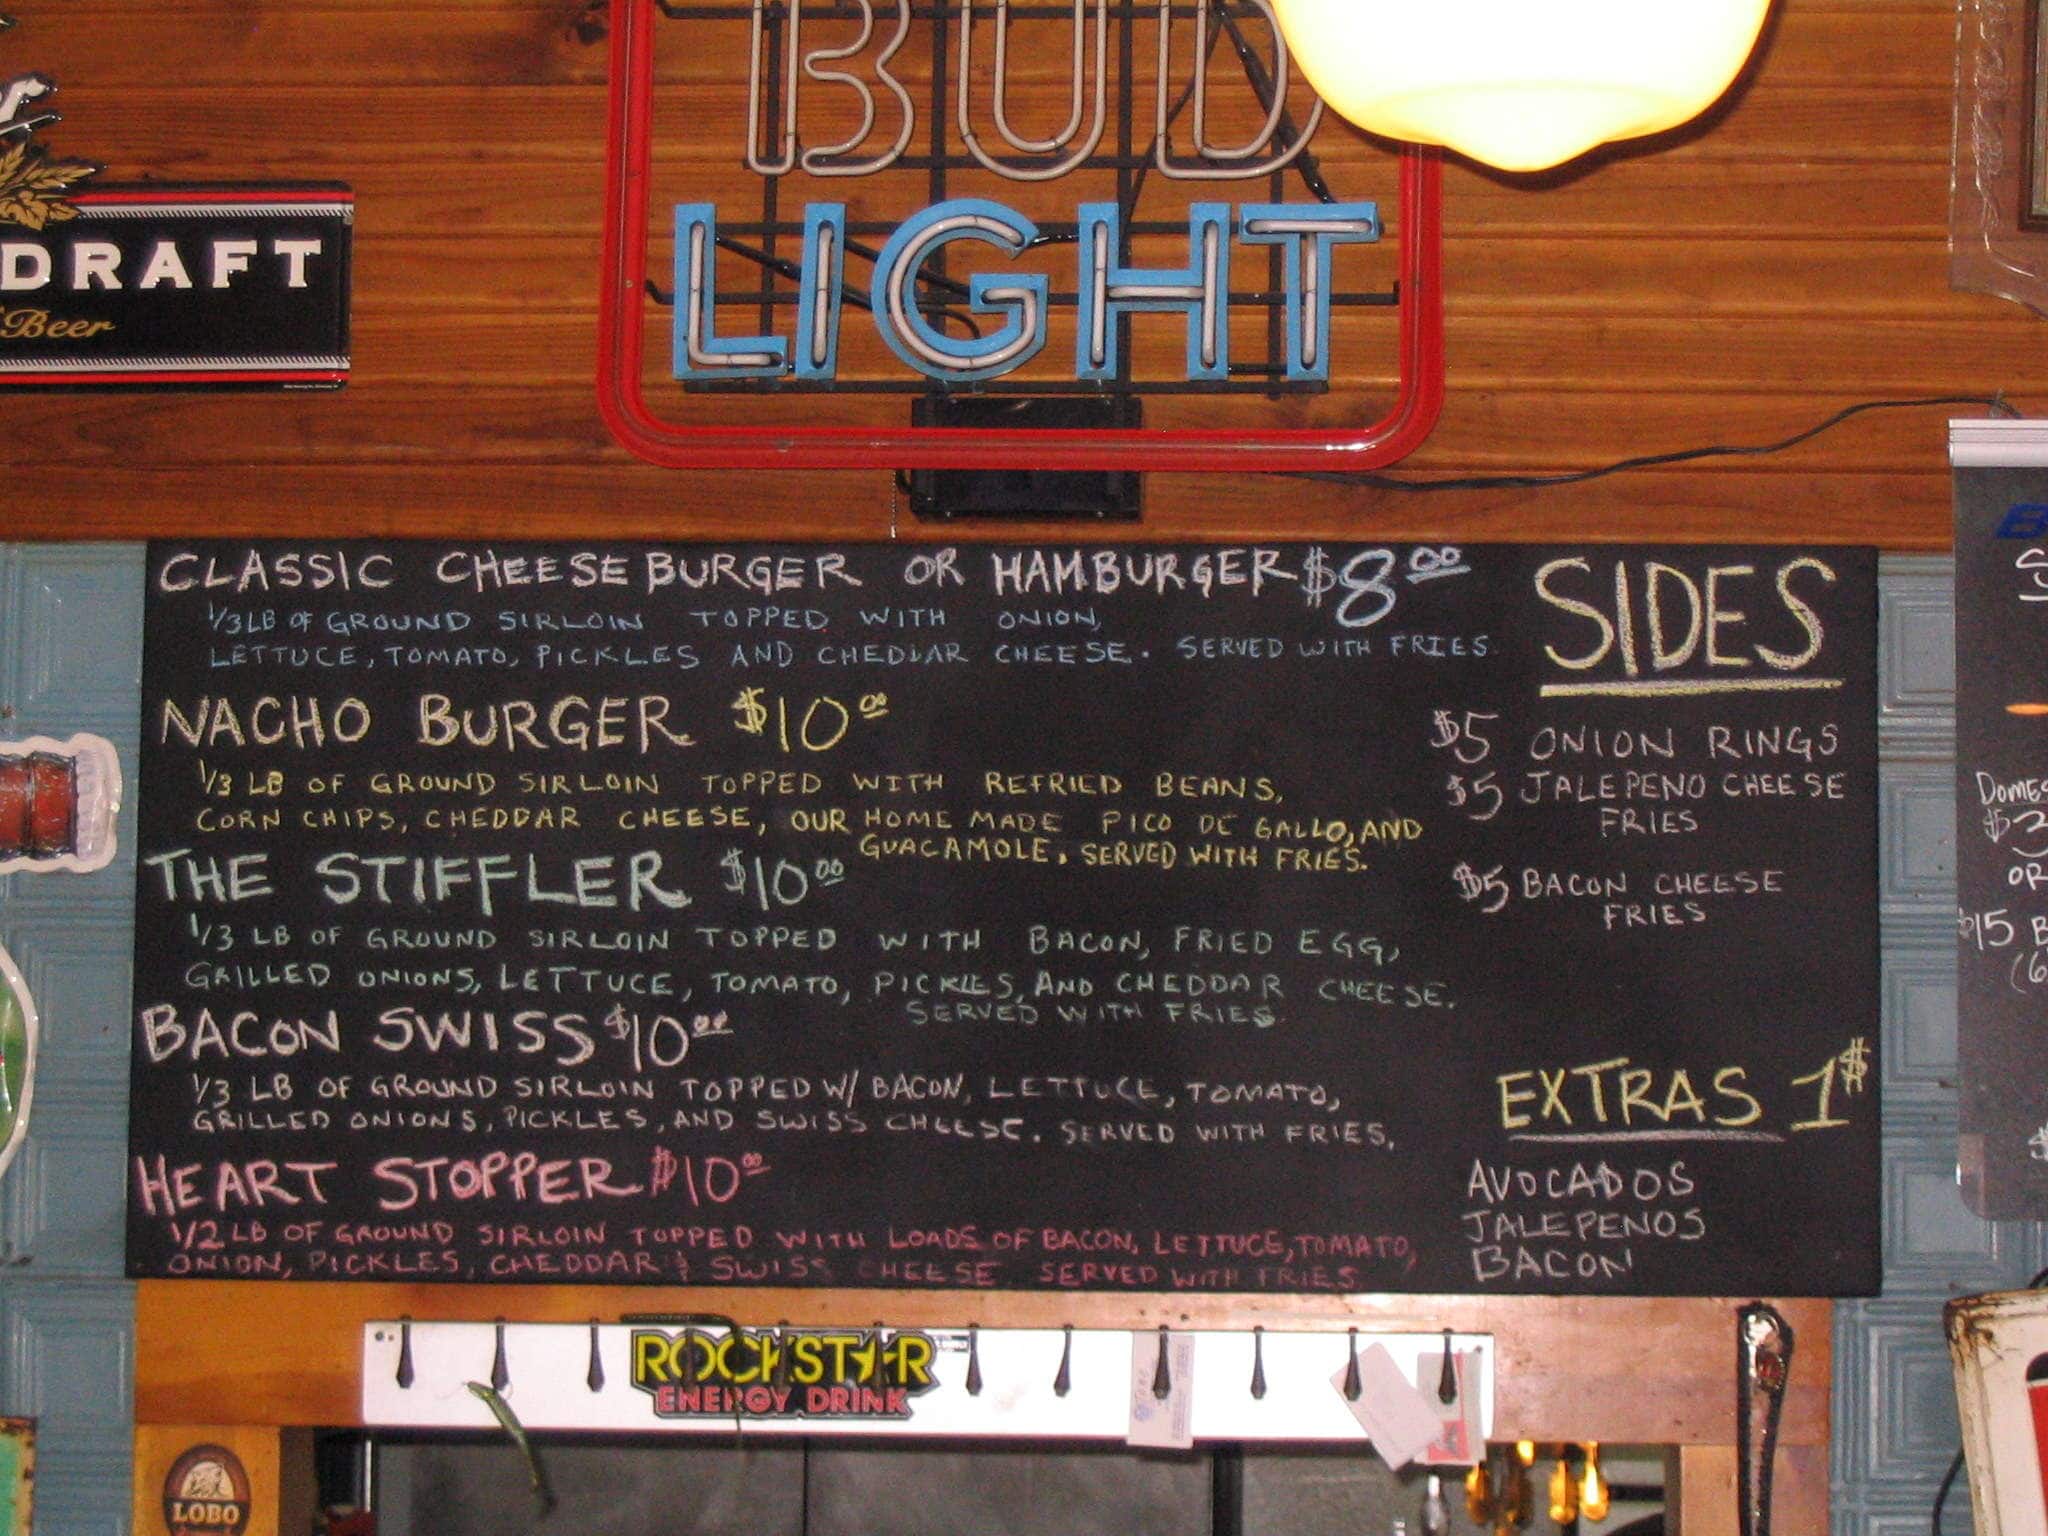 BUD
LIGHT
DRAFT
Beer
CLASSIC CHEESEBURGER OR HAMBURGER $8.00
1/3 LB OF GROUND SIRLOIN TOPPED WITH ONION,
LETTUCE, TOMATO, PICKLES AND CHEDDAR CHEESE. SERVED WITH FRIES.
NACHO BURGER $10.00
1/3 LB OF GROUND SIRLOIN TOPPED WITH REFRIED BEANS,
CORN CHIPS, CHEDDAR CHEESE, OUR HOME MADE PICO DE GALLO, AND
GUACAMOLE. SERVED WITH FRIES.
THE STIFFLER $10.00
1/3 LB OF GROUND SIRLOIN TOPPED WITH BACON, FRIED EGG,
GRILLED ONIONS, LETTUCE, TOMATO, PICKLES, AND CHEDDAR CHEESE.
SERVED WITH FRIES.
BACON SWISS $10.00
1/3 LB OF GROUND SIRLOIN TOPPED W/ BACON, LETTUCE, TOMATO,
GRILLED ONIONS, PICKLES, AND SWISS CHEESE. SERVED WITH FRIES.
HEART STOPPER $10.00
1/2 LB OF GROUND SIRLOIN TOPPED WITH LOADS OF BACON, LETTUCE, TOMATO,
ONION, PICKLES, CHEDDAR & SWISS CHEESE. SERVED WITH FRIES.
SIDES
$5 ONION RINGS
$5 JALEPENO CHEESE
FRIES
$5 BACON CHEESE
FRIES
EXTRAS 1$
AVOCADOS
JALEPENOS
BACON
$3
OR
$15 B
(6
ROCKSTAR
ENERGY DRINK
LOBO